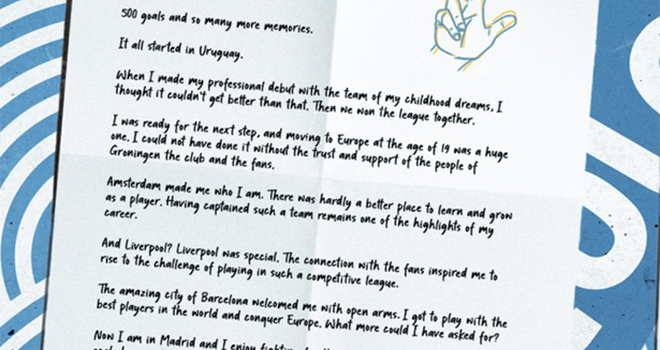 500 goals and so many more memories.
It all started in Uruguay.
When I made my professional debut with the team of my childhood dreams, I
thought it couldn't get better than that. Then we won the league together.
I was ready for the next step, and moving to Europe at the age of 19 was a huge
one. I could not have done it without the trust and support of the people of
Groningen the club and the fans.
Amsterdam made me who I am. There was hardly a better place to learn and grow
as a player. Having captained such a team remains one of the highlights of my
career.
And Liverpool? Liverpool was special. The connection with the fans inspired me to
rise to the challenge of playing in such a competitive league.
The amazing city of Barcelona welcomed me with open arms. I got to play with the
best players in the world and conquer Europe. What more could I have asked for?
Now I am in Madrid and I enjoy